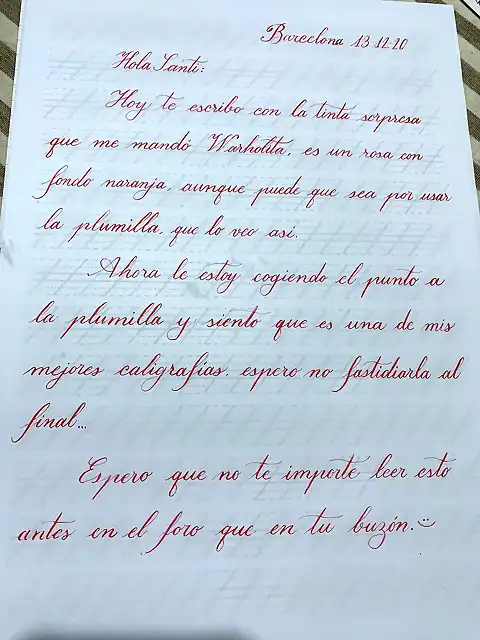 Barcelona 13-12-20
Hola Santi:
Hoy te escribo con la tinta sorpresa
que me mandó Warholita, es un rosa con
fondo naranja, aunque puede que sea por usar
la plumilla, que lo veo así.
Ahora le estoy cogiendo el punto a
la plumilla y siento que es una de mis
mejores caligrafías. espero no fastidiarla al
final...
Espero que no te importe leer esto
antes en el foro que en tu buzón. :)